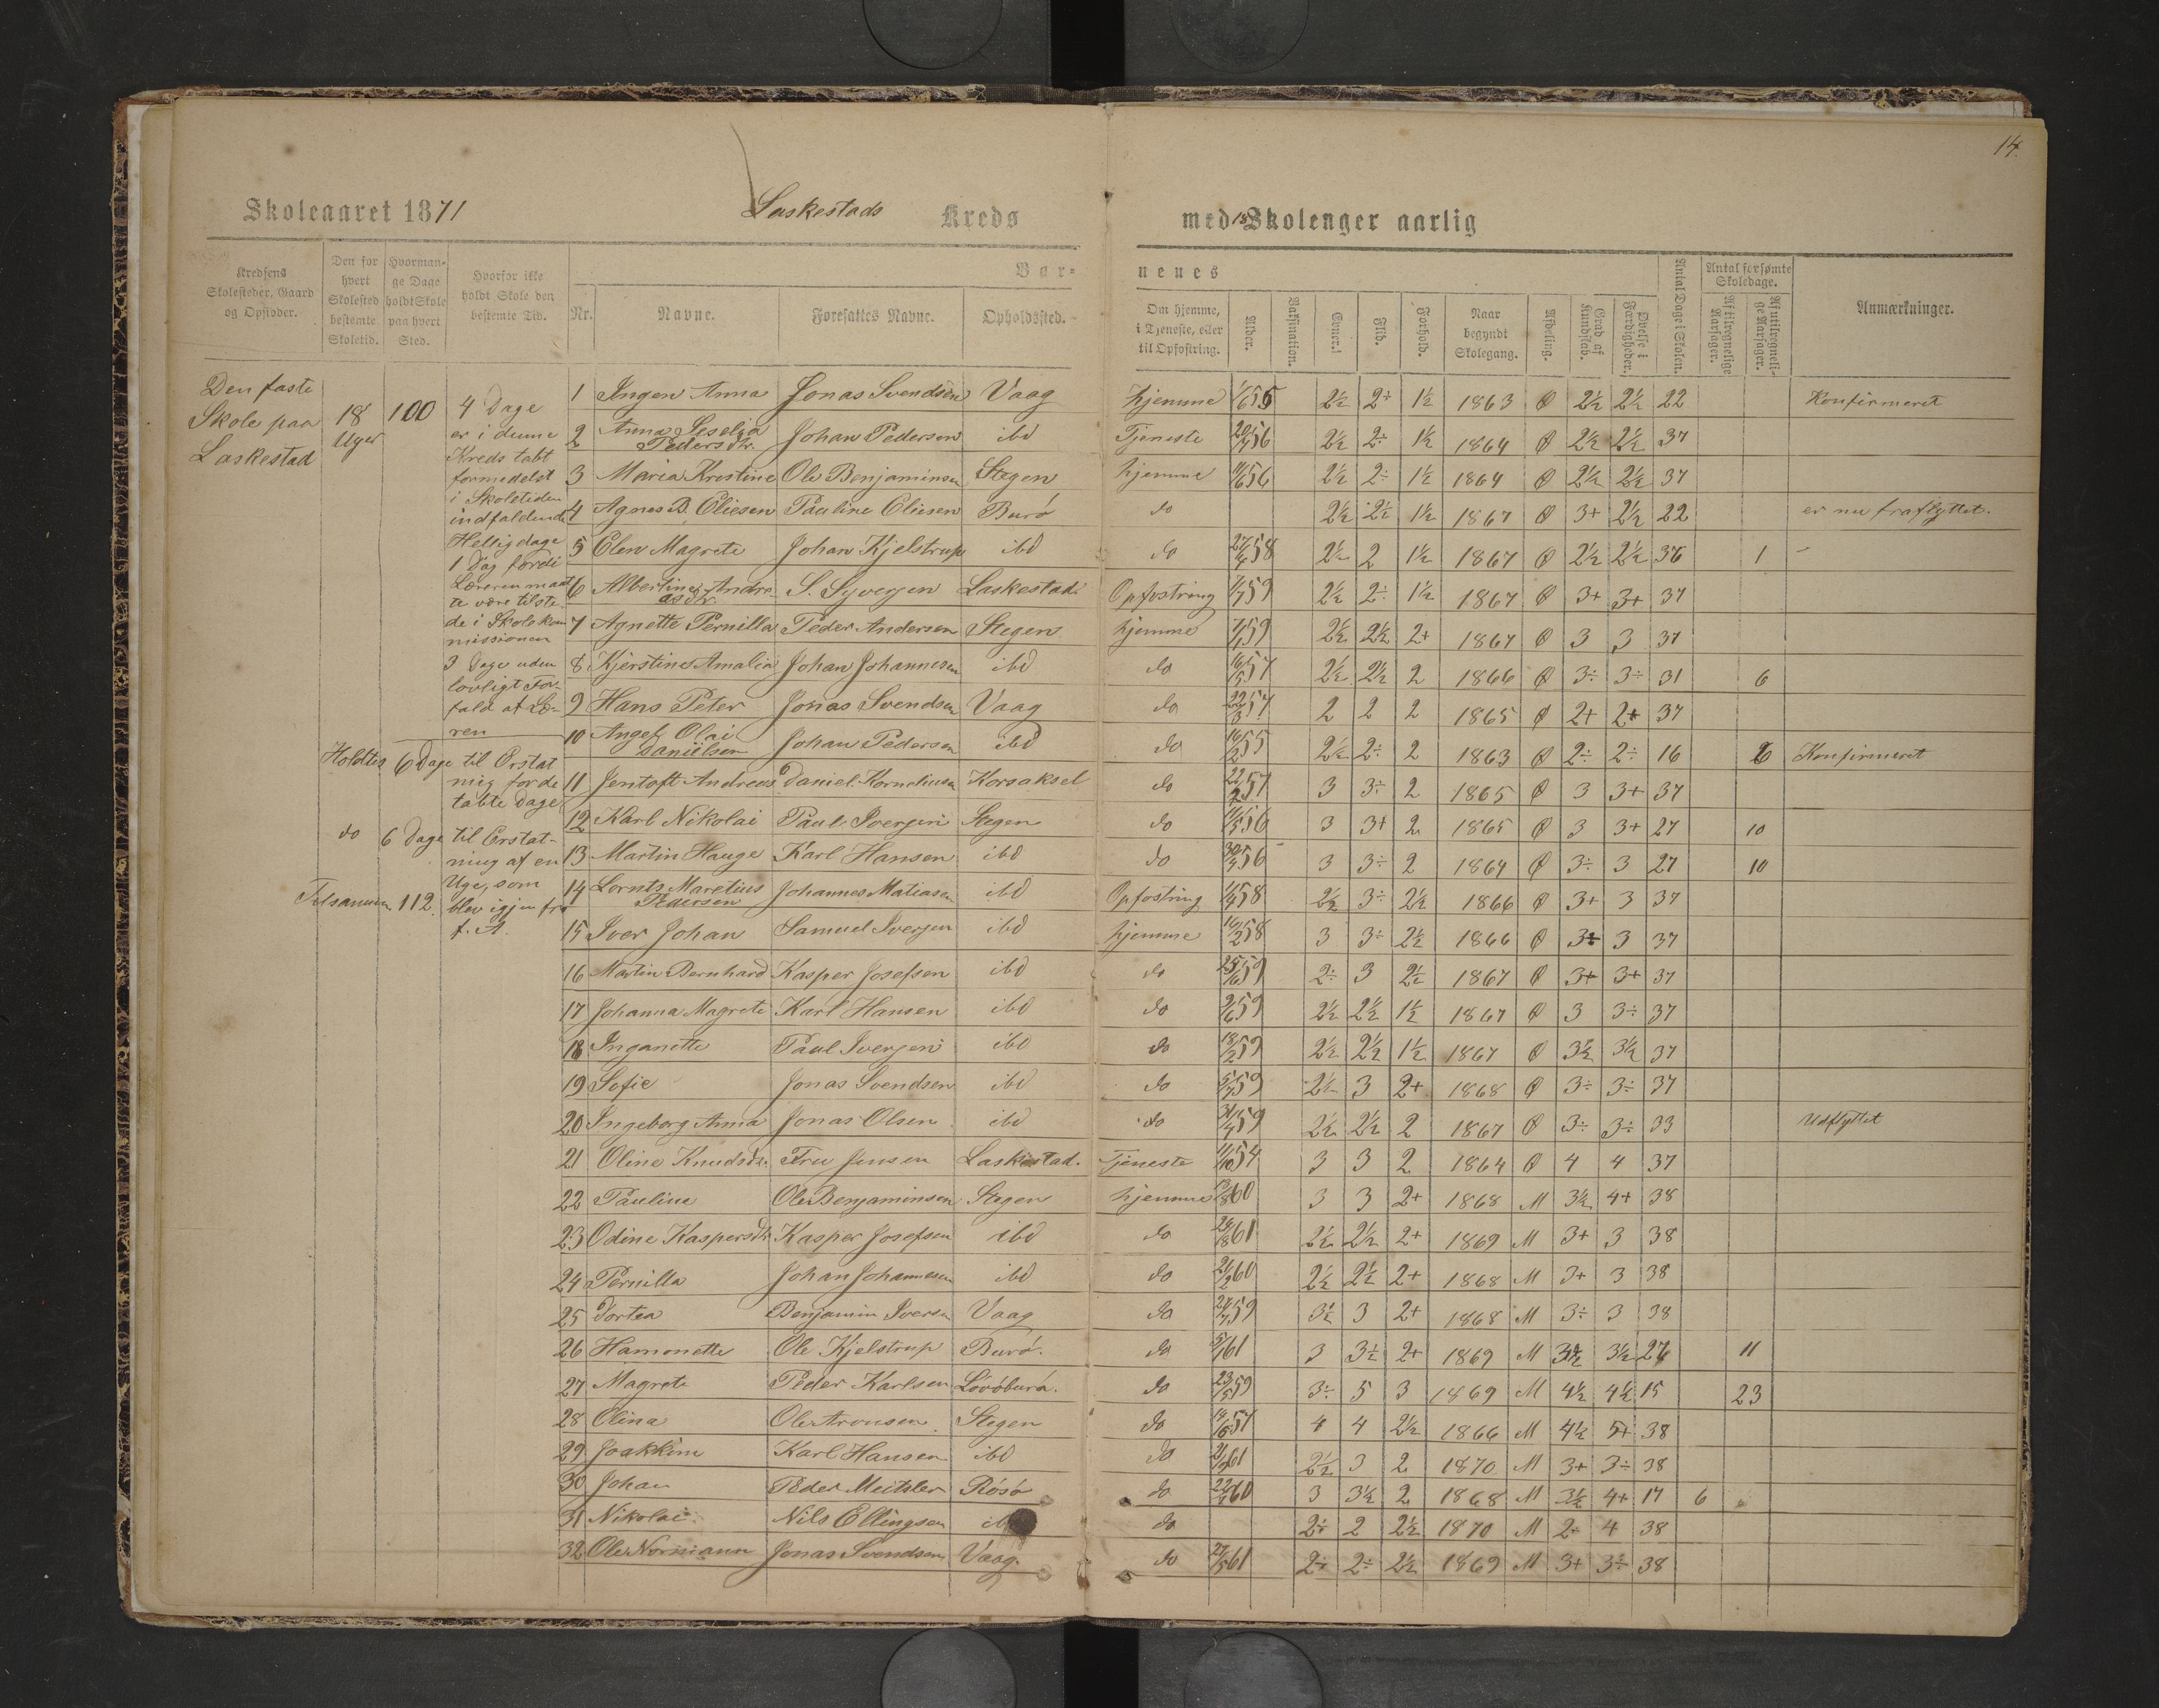 14.
Skoleaaret 1871 Laskestads Kreds
med 18 Skoleuger aarlig
Kredsens Skolesteder, Gaard og Opsidder.
Den for hvert Skolested bestemte Skoletid.
Hvormange Dage holdt Skole paa hvert Sted.
Hvorfor ikke holdt Skole den bestemte Tid.
Bar-
nenes
Nr. Navne. Foresattes Navne. Opholdssted.
Om hjemme, i Tjeneste, eller til Opfostring.
Alder. Vaksination. Evner. Flid. Forhold. Naar begyndt Skolegang. Afdeling. Grad af Kundskab. Øvelse i Færdigheder. Antal Dage i Skolen.
Antal forsømte Skoledage.
Af tilregnelige Aarsager. Af utilregnelige Aarsager.
Anmærkninger.
Den faste
Skole paa
Laskestad
18
Uger
100
4 Dage
er i denne
Kreds tabt
formedelst
i Skoletiden
indfaldende
Helligdage
1 Dag fordi
Læreren maat
te være tilste-
de i Skolekom
missionen
3 Dage uden
lovligt For-
fald af Læ-
ren
Holdtes 6 Dage til Erstat
ning for de
tabte Dage
do 6 Dage til Erstat-
ning af en
Uge, som
blev igjen fra
f. A.
Tilsammen 112.
1 Ingen Anna Jonas Svendsen Vaag hjemme 1/6 55 2½ 2+ 1½ 1863 Ø 2½ 2½ 22 Konfirmeret
2 Anna Seselia Pedersdtr. Johan Pedersen ibd Tjeneste 20/7 56 2½ 2÷ 1½ 1864 Ø 2½ 2½ 37
3 Maria Kristine Ole Benjaminsen Stegen hjemme 11/6 56 2½ 2÷ 1½ 1864 Ø 2½ 2½ 37
4 Agnes B. Eliesen Pauline Eliesen Burö do 2½ 2½ 1½ 1867 Ø 3+ 2½ 22 er nu fraflyttet.
5 Elen Magrete Johan Kjelstrup ibd do 27/4 58 2½ 2 1½ 1867 Ø 2½ 2½ 36 1 -
6 Albertine Andreasdtr. S. Syversen Laskestad Opfostring 1/7 59 2½ 2÷ 1½ 1867 Ø 3+ 3+ 37
7 Agnette Pernilla Peder Andersen Stegen hjemme 7/1 59 2½ 2½ 2+ 1867 Ø 3 3 37
8 Kjerstine Amalia Johan Johannesen ibd do 16/5 57 2½ 2½ 2 1866 Ø 3÷ 3÷ 31 6
9 Hans Peter Jonas Svendsen Vaag do 22/3 57 2 2 2 1865 Ø 2+ 2+ 37
10 Angel Olai Danielsen Johan Pedersen ibd do 16/2 55 2½ 2÷ 2 1863 Ø 2÷ 2÷ 16 6 Konfirmeret
11 Jentoft Andreas Daniel Korneliusen Korsaksel do 22/2 57 3 3÷ 2 1865 Ø 3 3+ 37
12 Karl Nikolai Paul Iversen Stegen do 11/5 56 3 3+ 2 1865 Ø 3 3+ 27 10
13 Martin Hauge Karl Hansen ibd do 30/4 56 3 3÷ 2 1864 Ø 3÷ 3 27 10
14 Lornts Maretius Pedersen Johannes Matiasen ibd Opfostring 1/4 58 2½ 3÷ 2½ 1866 Ø 3+ 3 37
15 Iver Johan Samuel Iversen ibd hjemme 16/2 58 3 3÷ 2½ 1866 Ø 3+ 3 37
16 Martin Bernhard Kasper Josefsen ibd do 25/6 59 2÷ 3 2½ 1867 Ø 3+ 3+ 37
17 Johanna Magrete Karl Hansen ibd do 2/6 59 2½ 2½ 1½ 1867 Ø 3 3÷ 37
18 Inganette Paul Iversen ibd do 18/2 59 2½ 2½ 1½ 1867 Ø 3½ 3½ 37
19 Sofie Jonas Svendsen ibd do 5/7 59 2½ 3 2+ 1868 Ø 3÷ 3÷ 37
20 Ingeborg Anna Jonas Olsen ibd do 31/7 59 2½ 2½ 2 1867 Ø 3÷ 3÷ 33 Udflyttet
21 Oline Knudsdtr. Fru Jensen Laskestad. Tjeneste 11/10 54 3 3 2 1864 Ø 4 4 37
22 Pauline Ole Benjaminsen Stegen hjemme 13/8 60 3 3 2+ 1868 M 3½ 4+ 38
23 Odine Kaspersdtr. Kasper Josefsen ibd do 24/8 61 2½ 2½ 2+ 1869 M 3+ 3 38
24 Pernilla Johan Johannesen ibd do 21/2 60 2½ 2½ 2+ 1868 M 3+ 3 38
25 Dortea Benjamin Iversen Vaag do 27/7 59 3½ 3 2+ 1868 M 3÷ 3 38
26 Hamonette Ole Kjelstrup Burö. do 61 3 3½ 2+ 1869 M 3½ 3½ 27 11
27 Magrete Peder Karlsen Lövöburö. do 23/5 59 3÷ 5 3 1869 M 4½ 4½ 15 23
28 Olina Ole Aronsen Stegen do 57 4 4 2½ 1866 M 4½ 5+ 38
29 Joakkim Karl Hansen ibd do 61 2½ 3 2 1870 M 3+ 3÷ 38
30 Johan Peder Meitsler Rösö do 60 3 3½ 2 1868 M 3½ 4+ 17 6
31 Nikolai Nils Ellingsen ibd do 2÷ 2 2½ 1870 M 2÷ 4 38
32 Ole Normann Jonas Svendsen Vaag. do 27/5 61 2÷ 2÷ 2½ 1869 M 3+ 3÷ 38